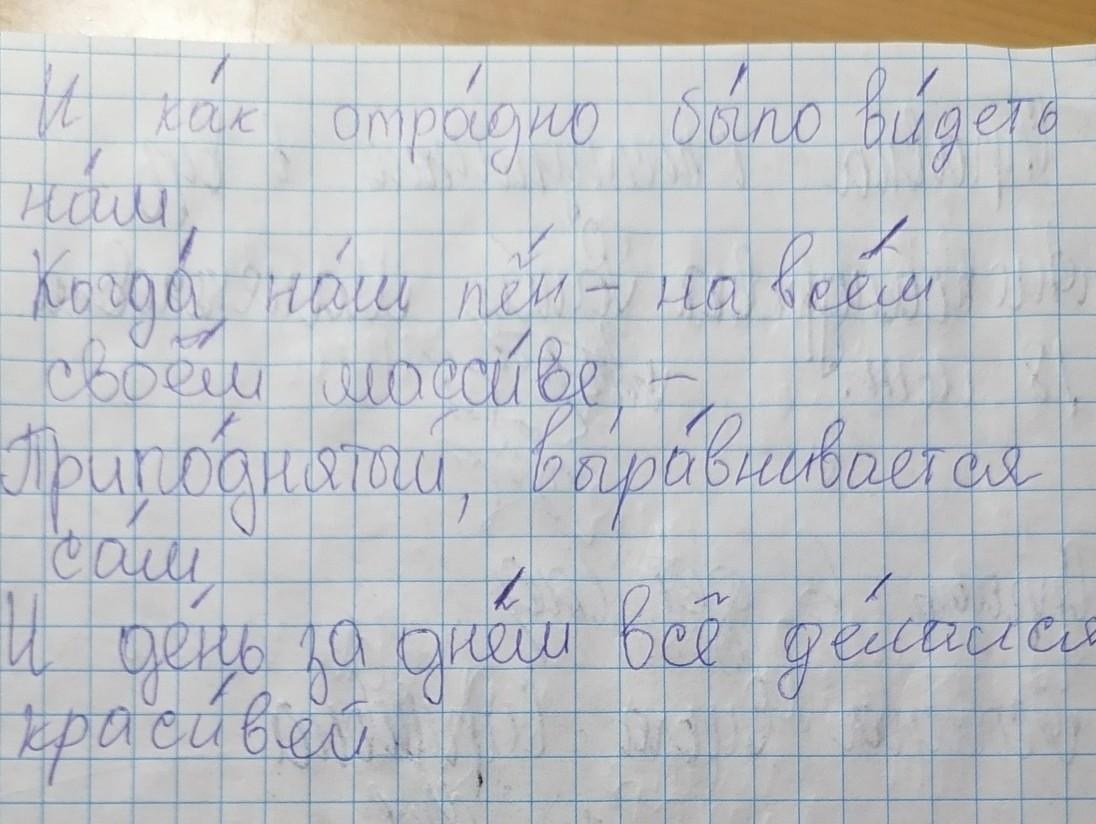 И ка́к отра́дно бы́ло ви́деть
на́м,
Когда́ на́ш лён – на всём
своём масси́ве, –
Припо́днятый, выра́внивается
са́м,
И де́нь за днём всё де́лался
краси́вей.